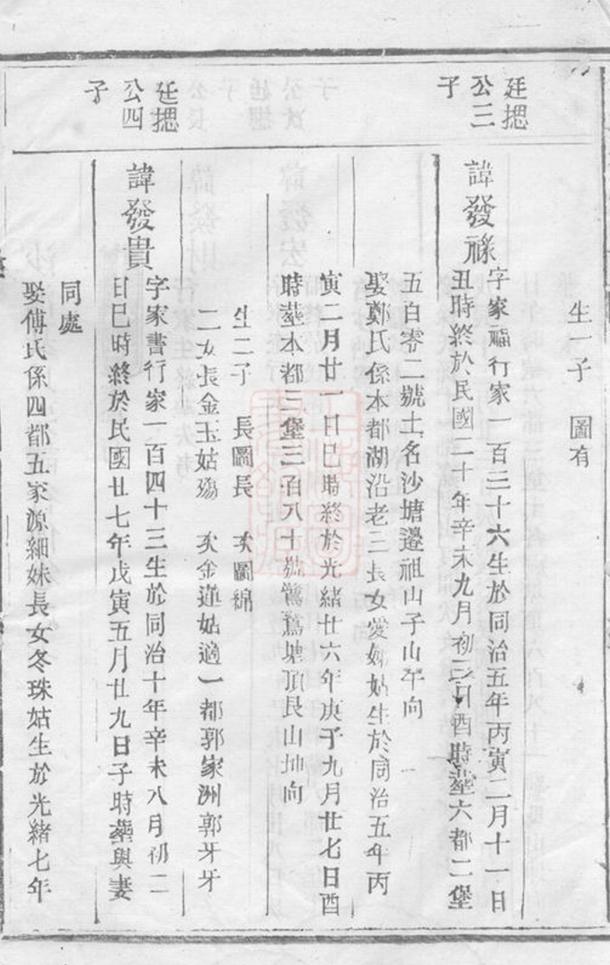 生一子　圖有
廷摁
公三
子
諱發祿
字家福行家一百三十六生於同治五年丙寅二月十一日
丑時終於民國二十年辛未九月初三日酉時塟六都二堡
五百零二號土名沙塘邊祖山子山午向
娶鄭氏係本都湖沿老三長女愛姊姑生於同治五年丙
寅二月廿一日巳時終於光緒廿六年庚子九月廿七日酉
時塟本都三堡三百八十號鴛鴦塘頂艮山坤向
生二子　長圖長　次圖綿
二女長金玉姑殤　次金蓮姑適一都郭家洲郭牙牙
廷摁
公四
子
諱發貴
字家書行家一百四十三生於同治十年辛未八月初二
日巳時終於民國廿七年戊寅五月廿九日子時塟與妻
同處
娶傅氏係四都五家源細妹長女冬珠姑生於光緒七年